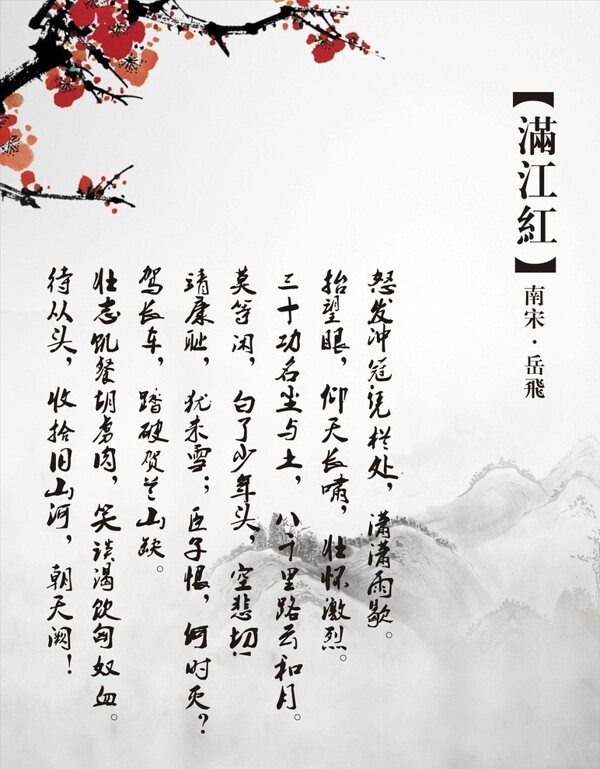 【滿江紅】
南宋·岳飛
怒发冲冠凭栏处，潇潇雨歇。
抬望眼，仰天长啸，壮怀激烈。
三十功名尘与土，八千里路云和月。
莫等闲，白了少年头，空悲切！
靖康耻，犹未雪；臣子恨，何时灭？
驾长车，踏破贺兰山缺。
壮志饥餐胡虏肉，笑谈渴饮匈奴血。
待从头，收拾旧山河，朝天阙！